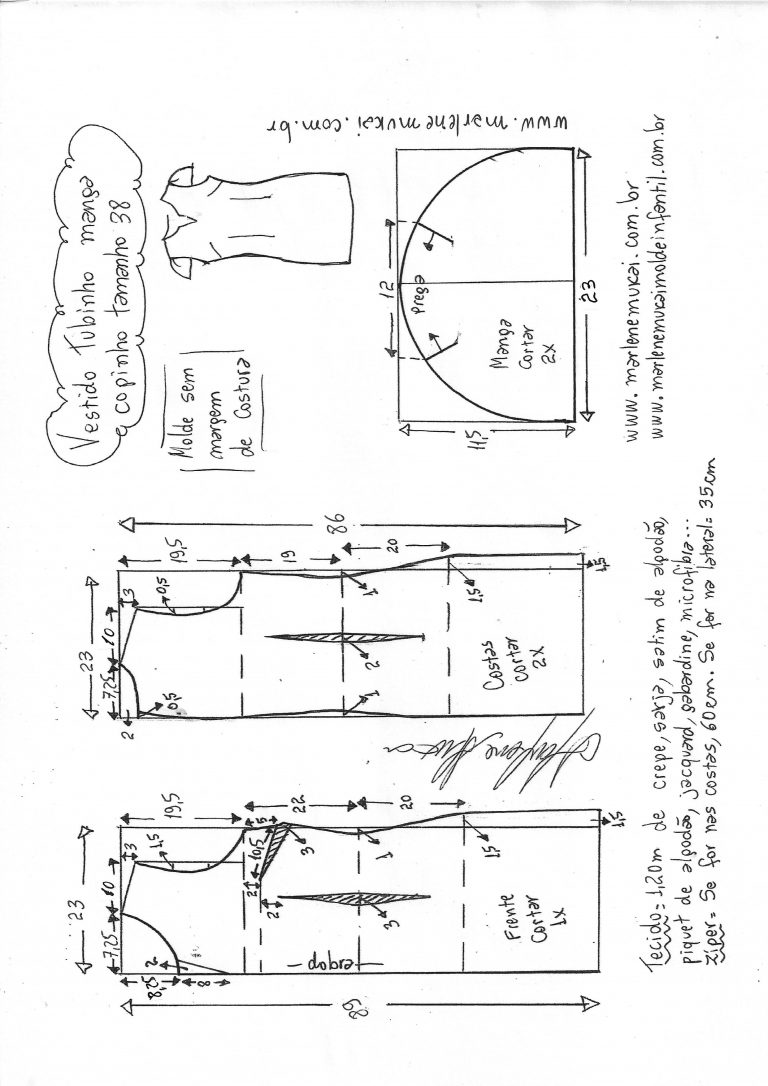 Vestido Tubinho manga
copinho tamanho 38
www.marlenemukai.com.br
Molde sem
margem
de Costura
12
Prega
Manga
Cortar
2x
11,5
23
www.marlenemukai.com.br
www.marlenemukaimoldeinfantil.com.br
23
7,25
10
3
0,5
2
0,5
19,5
19
20
86
1
1,5
1,5
2
1
Costas
cortar
2x
23
7,25
10
3
1,5
8,25
2
8
19,5
22
20
89
5
10,5
3
2
2
3
1
1,5
1,5
dobra
Frente
Cortar
1x
Tecido= 1,20m de crepe, sarja, satim de algodão,
piquet de algodão, jacquard, gabardine, microfibra...
Zíper= Se for nas costas, 60cm. Se for na lateral= 35cm